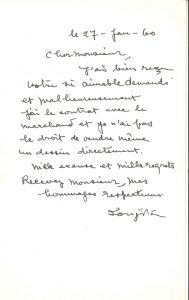 le 27 - Jan - 60
Cher monsieur,
J'ai bien reçu
votre si aimable demande
et malheureusement
j'ai le contrat avec le
marchand et je n'ai pas
le droit de vendre même
un dessin directement.
mille excuse et mille regrets
Recevez monsieur, mes
hommages respectueux